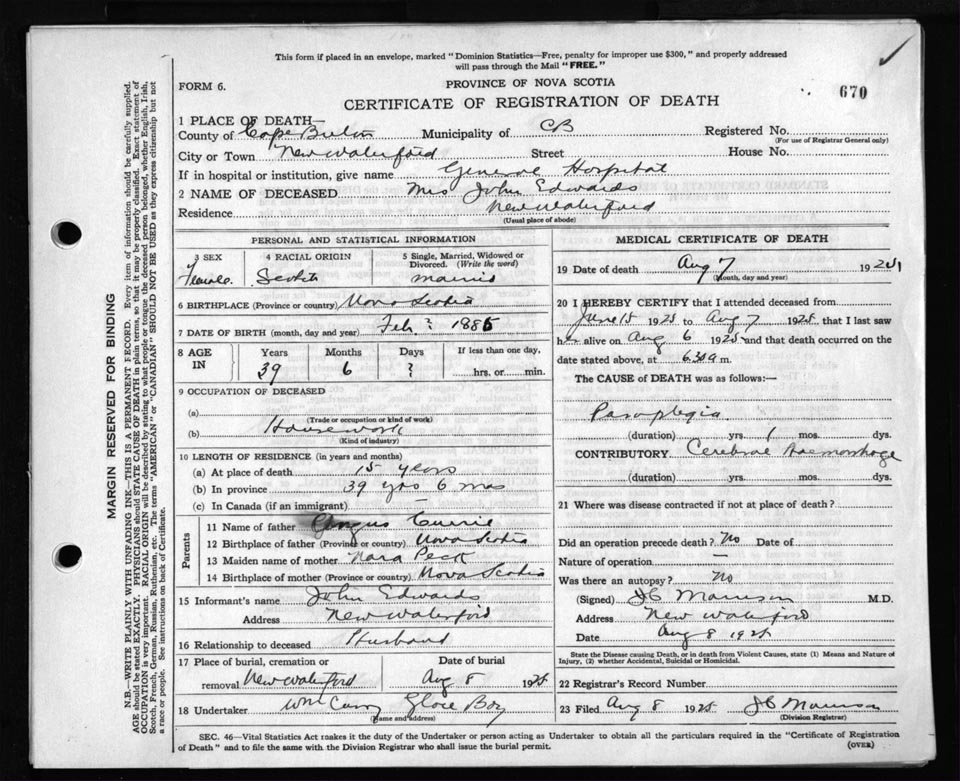 This form if placed in an envelope, marked "Dominion Statistics—Free, penalty for improper use $300," and properly addressed
will pass through the Mail "FREE."
FORM 6.
PROVINCE OF NOVA SCOTIA
670
CERTIFICATE OF REGISTRATION OF DEATH
1 PLACE OF DEATH—
County of Cape Breton Municipality of CB Registered No.
(For use of Registrar General only)
City or Town New Waterford Street House No.
If in hospital or institution, give name General Hospital
2 NAME OF DECEASED Mrs John Edwards
Residence New Waterford
(Usual place of abode)
PERSONAL AND STATISTICAL INFORMATION
3 SEX 4 RACIAL ORIGIN 5 Single, Married, Widowed or Divorced. (Write the word)
Female Scotch Married
6 BIRTHPLACE (Province or country) Nova Scotia
7 DATE OF BIRTH (month, day and year) Feb ? 1885
8 AGE IN Years Months Days If less than one day,
39 6 ? hrs. or min.
9 OCCUPATION OF DECEASED
(a)
(Trade or occupation or kind of work)
(b) Housework
(Kind of industry)
10 LENGTH OF RESIDENCE (in years and months)
(a) At place of death 15 years
(b) In province 39 yrs 6 mos
(c) In Canada (if an immigrant) —
Parents
11 Name of father Angus Currie
12 Birthplace of father (Province or country) Nova Scotia
13 Maiden name of mother Peck
14 Birthplace of mother (Province or country) Nova Scotia
15 Informant's name John Edwards
Address New Waterford
16 Relationship to deceased Husband
17 Place of burial, cremation or Date of burial
removal New Waterford Aug 8 1925
18 Undertaker Wm Curry Glace Bay
(Name and address)
MEDICAL CERTIFICATE OF DEATH
19 Date of death Aug 7 1925
(Month, day and year)
20 I HEREBY CERTIFY that I attended deceased from
June 15 1925 to Aug 7 1925 that I last saw
her alive on Aug 6 1925 and that death occurred on the
date stated above, at 6.30 a m.
The CAUSE of DEATH was as follows:—
Paraplegia
(duration) yrs. 1 mos. dys.
CONTRIBUTORY Cerebral Haemorrhage
(duration) yrs. mos. dys.
21 Where was disease contracted if not at place of death?
Did an operation precede death? No Date of
Nature of operation —
Was there an autopsy? No
(Signed) M.D.
Address New Waterford
Date Aug 8 1925
State the Disease causing Death, or in death from Violent Causes, state (1) Means and Nature of
Injury, (2) whether Accidental, Suicidal or Homicidal.
22 Registrar's Record Number
23 Filed Aug 8 1925
(Division Registrar)
SEC. 46—Vital Statistics Act makes it the duty of the Undertaker or person acting as Undertaker to obtain all the particulars required in the "Certificate of Registration
of Death" and to file the same with the Division Registrar who shall issue the burial permit.
(OVER)
MARGIN RESERVED FOR BINDING
N.B.—WRITE PLAINLY WITH UNFADING INK—THIS IS A PERMANENT RECORD. Every item of information should be carefully supplied.
AGE should be stated EXACTLY. PHYSICIANS should STATE CAUSE OF DEATH in plain terms, so that it may be properly classified. Exact statement of
OCCUPATION is very important. RACIAL ORIGIN will be described by stating to what people or tongue the deceased person belonged, whether English, Irish,
Scotch, French, German, Russian, Ruthenian, etc. The terms "AMERICAN" or "CANADIAN" SHOULD NOT BE USED as they express citizenship but not
a race or people. See instructions on back of Certificate.